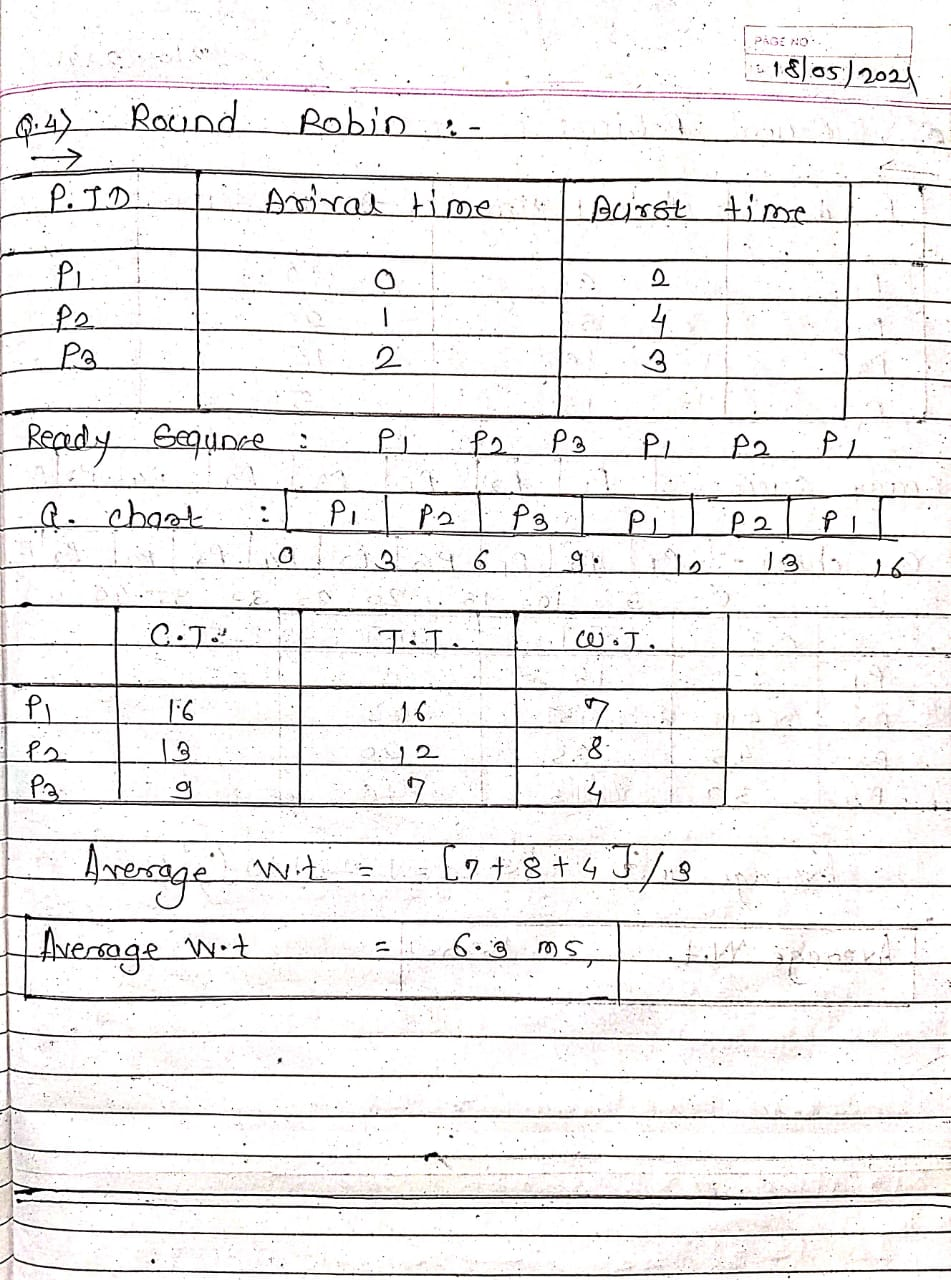 PAGE NO
18/05/2021
Q.4) Round Robin :-
P.ID Arival time Burst time
P1 0 2
P2 1 4
P3 2 3
Ready Sequnce : P1 P2 P3 P1 P2 P1
G. chart : P1 P2 P3 P1 P2 P1
0 3 6 9 12 13 16
C.T. T.T. W.T.
P1 16 16 7
P2 13 12 8
P3 9 7 4
Average W.t = [7+8+4]/3
Average W.t = 6.3 ms,